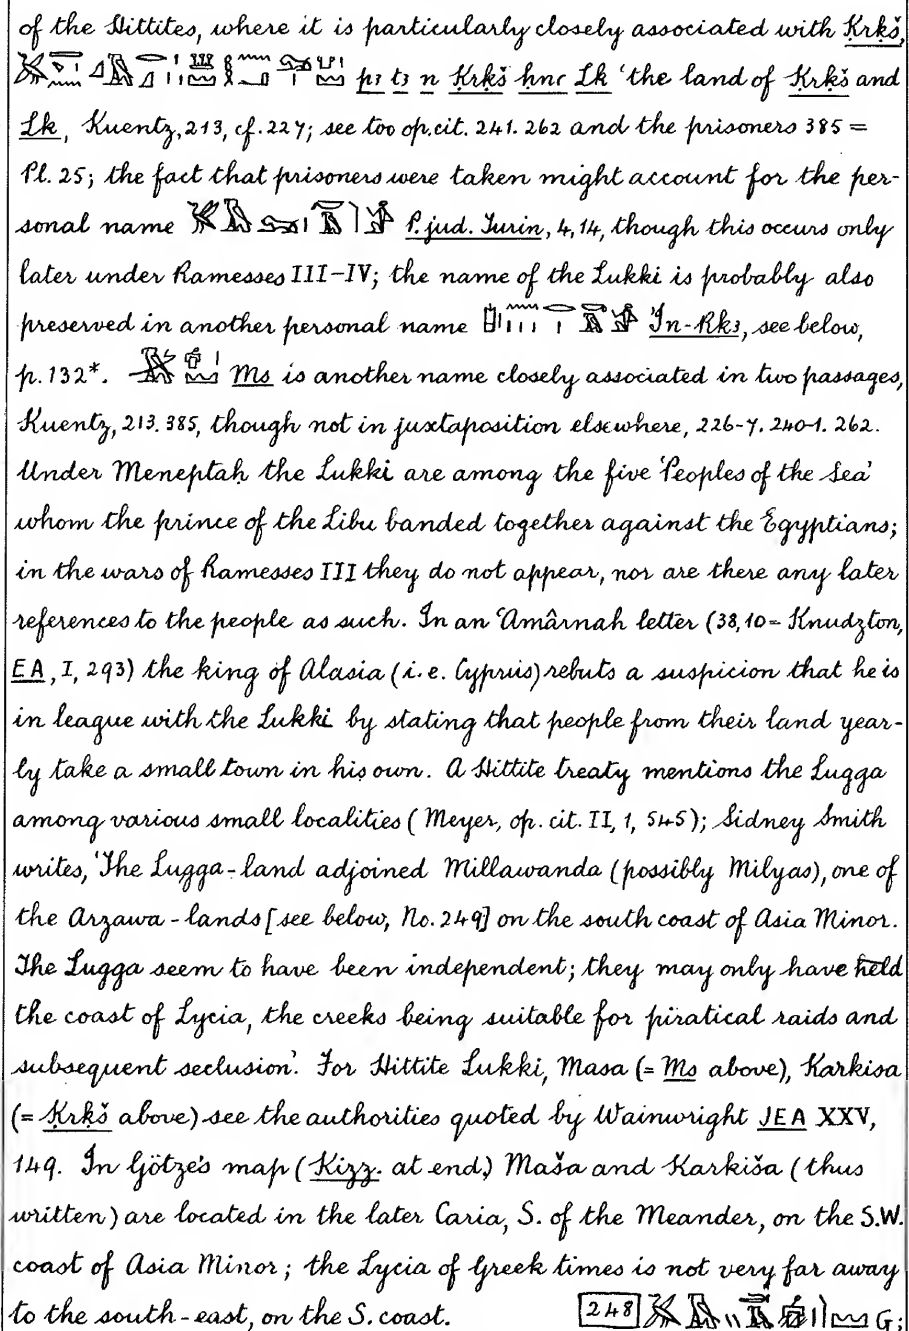 of the Hittites, where it is particularly closely associated with Ḳrḳš,
pꜣ tꜣ n Ḳrḳš ḥnꜥ Lk ‘the land of Ḳrḳš and
Lk, Kuentz, 213, cf. 227; see too op. cit. 241. 262 and the prisoners 385 =
Pl. 25; the fact that prisoners were taken might account for the per-
sonal name P. jud. Turin, 4, 14, though this occurs only
later under Ramesses III–IV; the name of the Lukki is probably also
preserved in another personal name ’In-Rkꜣ, see below,
p. 132*. Ms is another name closely associated in two passages,
Kuentz, 213. 385, though not in juxtaposition elsewhere, 226-7. 240-1. 262.
Under Meneptaḥ the Lukki are among the five ‘Peoples of the Sea’
whom the prince of the Libu banded together against the Egyptians;
in the wars of Ramesses III they do not appear, nor are there any later
references to the people as such. In an ‘Amârnah letter (38, 10 = Knudtzon,
EA, I, 293) the king of Alasia (i.e. Cyprus) rebuts a suspicion that he is
in league with the Lukki by stating that people from their land year-
ly take a small town in his own. A Hittite treaty mentions the Lugga
among various small localities (Meyer, op. cit. II, 1, 545); Sidney Smith
writes, ‘The Lugga-land adjoined Millawanda (possibly Milyas), one of
the Arzawa-lands [see below, No. 249] on the south coast of Asia Minor.
The Lugga seem to have been independent; they may only have held
the coast of Lycia, the creeks being suitable for piratical raids and
subsequent seclusion’. For Hittite Lukki, Masa (= Ms above), Karkisa
(= Ḳrḳš above) see the authorities quoted by Wainwright JEA XXV,
149. In Götze’s map (Kizz. at end) Maša and Karkiša (thus
written) are located in the later Caria, S. of the Meander, on the S.W.
coast of Asia Minor; the Lycia of Greek times is not very far away
to the south-east, on the S. coast. 248 G;